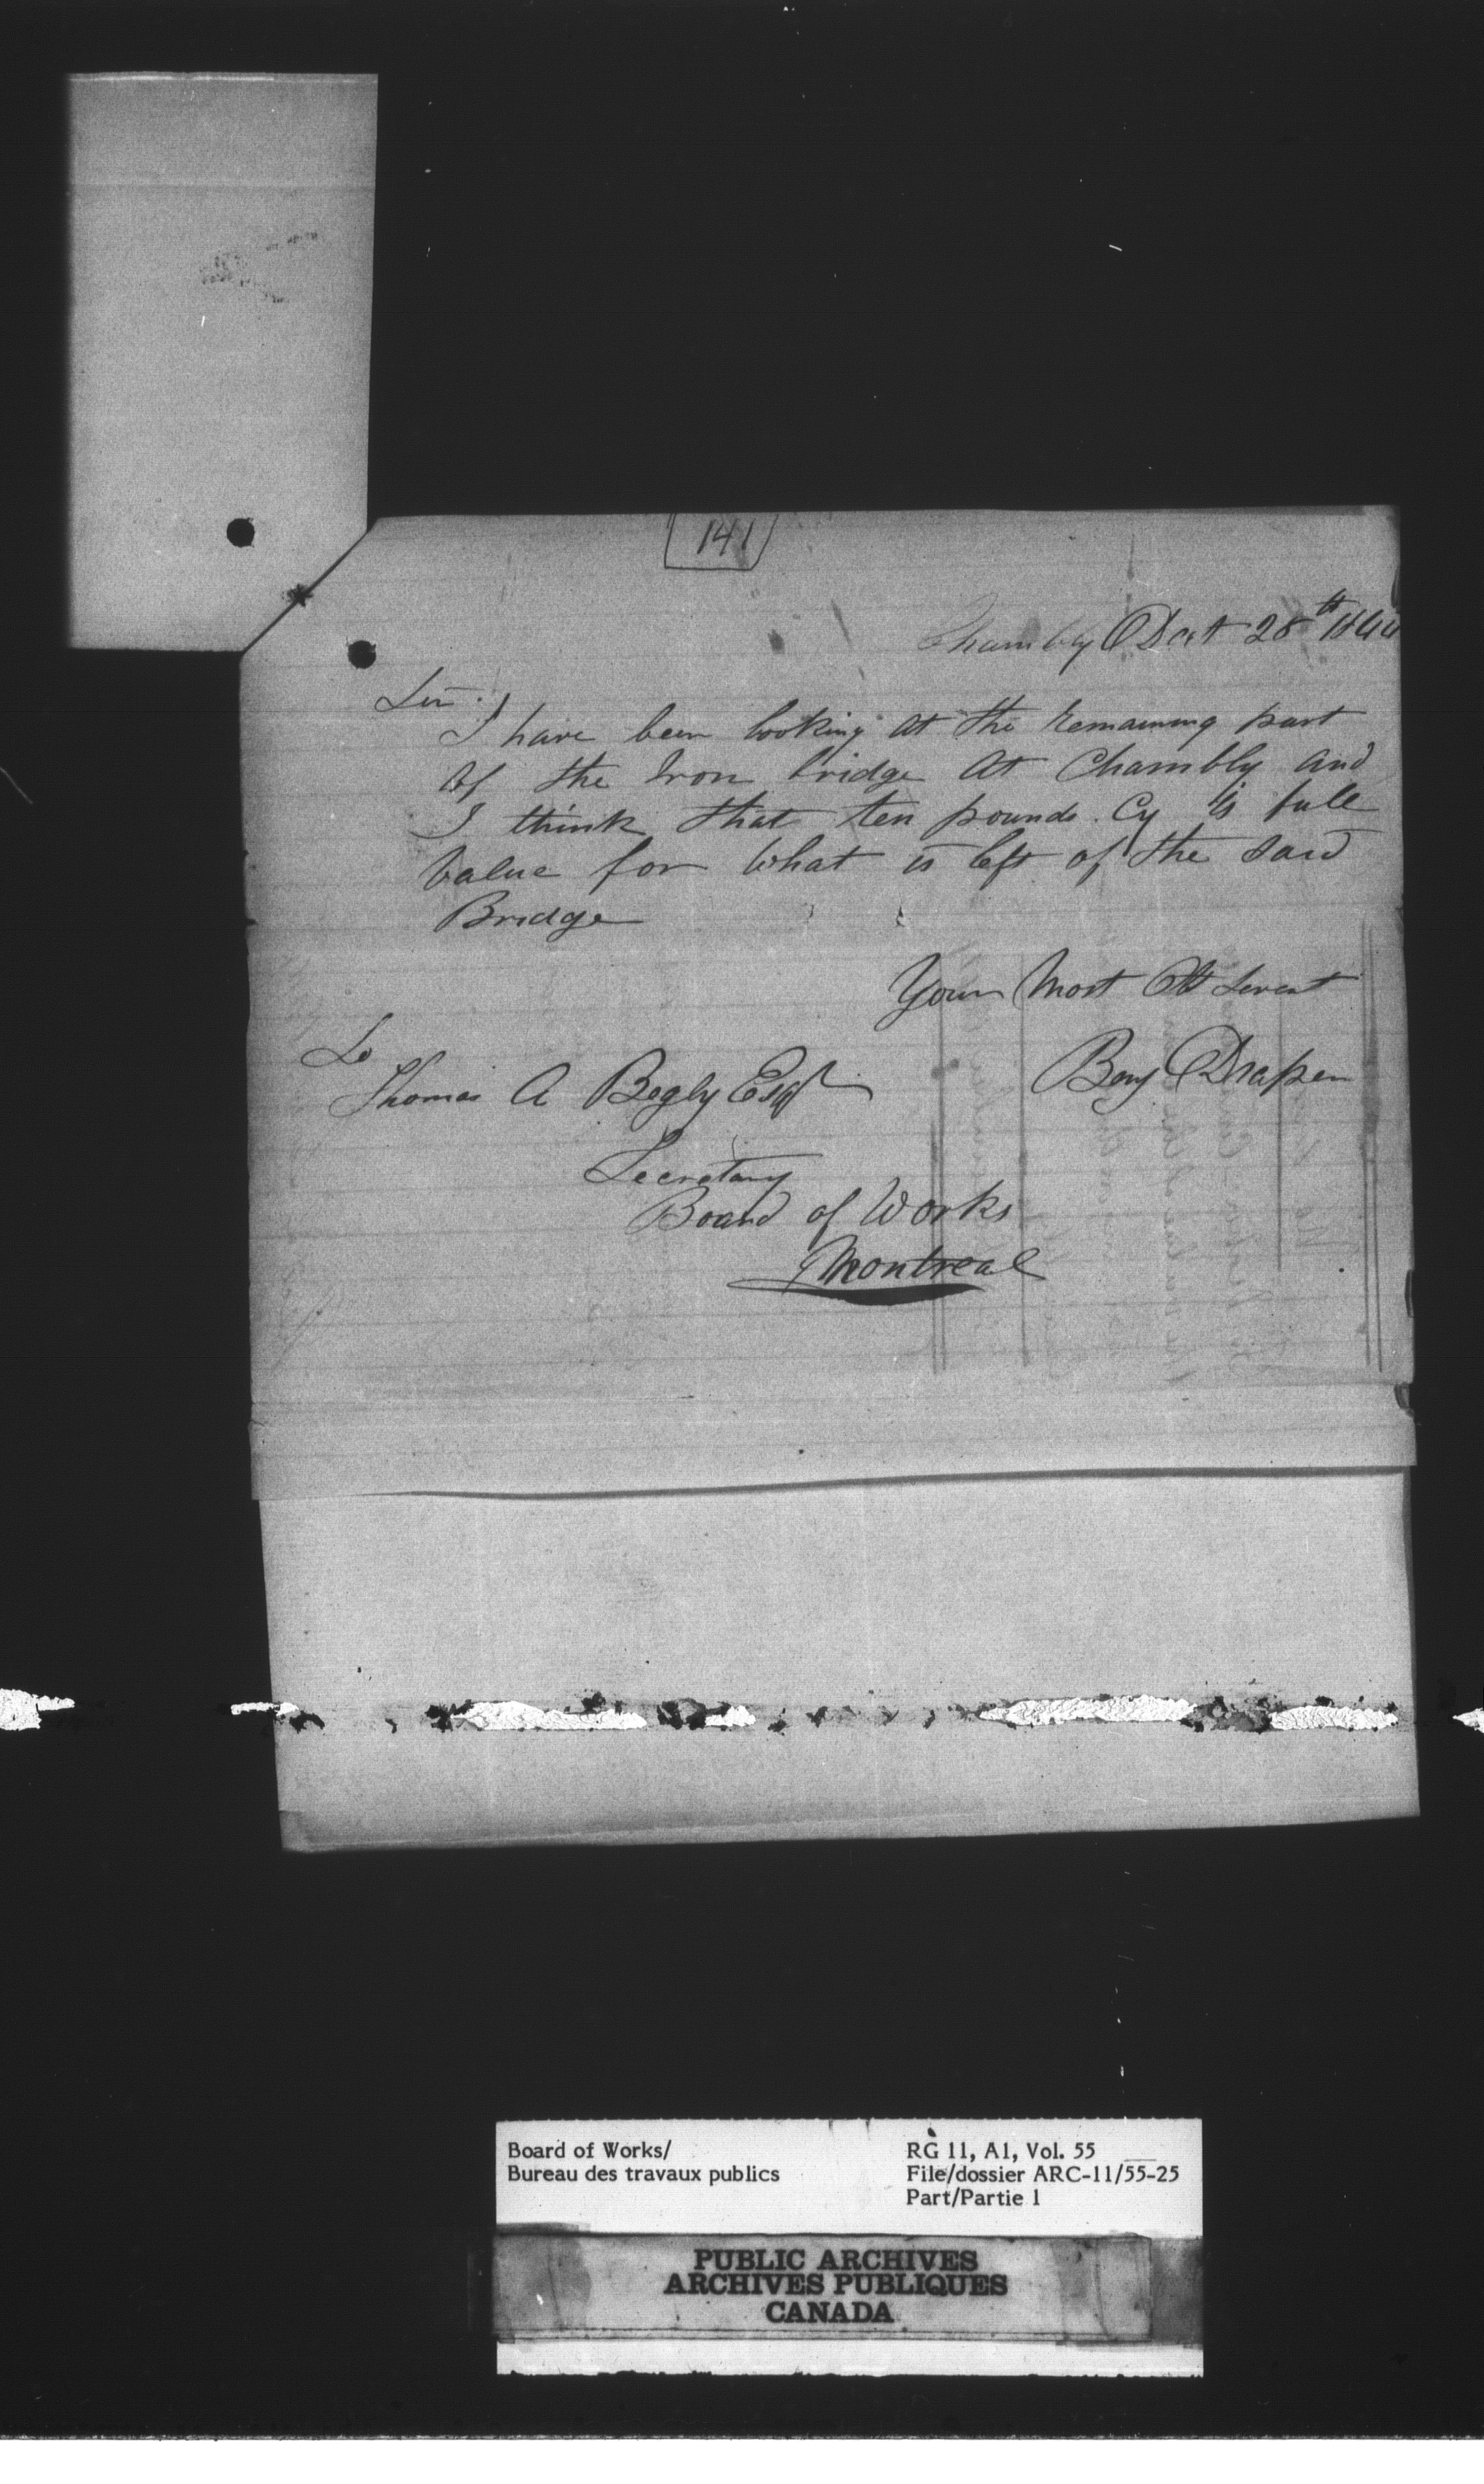 141
Chambly Oct 28th 1844
Sir.
I have been looking at the remaining part
of the Iron bridge at Chambly and
I think that ten pounds Cy is full
value for what is left of the said
Bridge
Your Most Obt Servt
Benj Draper
To
Thomas A Begly Esqr
Secretary
Board of Works
Montreal
Board of Works/
Bureau des travaux publics
RG 11, A1, Vol. 55
File/dossier ARC-11/55-25
Part/Partie 1
PUBLIC ARCHIVES
ARCHIVES PUBLIQUES
CANADA